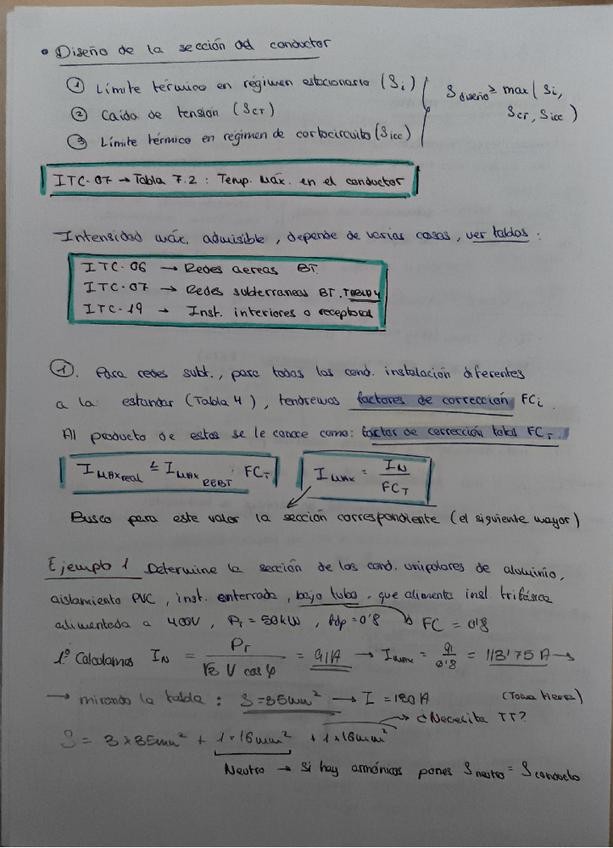 • Diseño de la sección del conductor
① Límite térmico en régimen estacionario (Si)
② Caída de tensión (Scr)
③ Límite térmico en regimen de cortocircuito (Sicc)
Sdiseño ≥ max (Si,
Scr, Sicc)
ITC-07 → Tabla 7.2 : Temp. máx. en el conductor
Intensidad máx. admisible, depende de varias cosas, ver tablas :
ITC-06 → Redes aereas BT.
ITC-07 → Redes subterraneas BT. TABLA 4
ITC-19 → Inst. interiores o receptoras
①. Para redes subt., para todas las cond. instalación diferentes
a la estandar (Tabla 4), tendremos factores de corrección FCi.
Al producto de estos se le conoce como: factor de corrección total FCT.
IMAXreal ≤ IMAXREBT · FCT
Imax = IN / FCT
Busco para este valor la sección correspondiente (el siguiente mayor)
Ejemplo 1 Determine la sección de los cond. unipolares de aluminio,
aislamiento PVC, inst. enterrada, bajo tubo, que alimenta inst. trifásica
alimentada a 400V, Pr = 50kW, fdp = 0'8 → FC = 0'8
1º Calculamos IN = Pr / √3 V cos φ = 91A → Imax = 91 / 0'8 = 113'75 A →
→ mirando la tabla : S = 35mm² → I = 130A (Toma tierra)
→ ¿Necesita TT?
S = 3 x 35mm² + 1 x 16mm² + 1 x 16mm²
Neutro → Si hay armónicos pones Sneutro = Sconducto